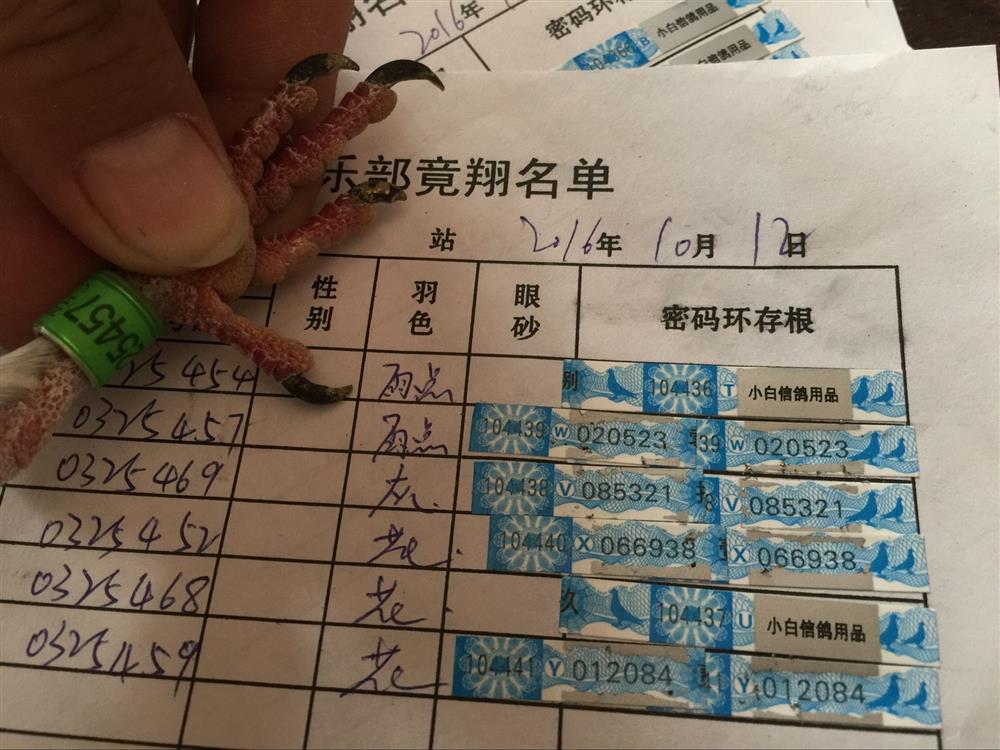 2016年
密码环存根
104436 B 小白信鸽用品
小白信鸽用品
乐部竟翔名单
站 2016年 10月 12日
性别 羽色 眼砂 密码环存根
25454 雨点 别 104436 T 小白信鸽用品
0325457 雨点 104439 W 020523 39 W 020523
0325469 灰 104438 V 085321 8 V 085321
0325452 花 104440 X 066938 X 066938
0325468 花 玖 104437 U 小白信鸽用品
0325459 花 104441 Y 012084 1 Y 012084
5457